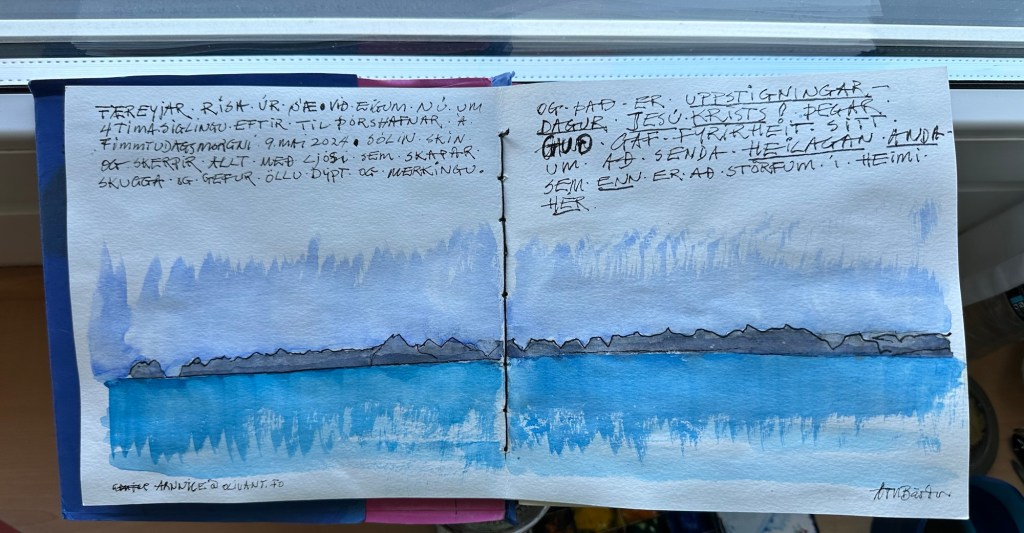 FÆREYJAR · RÍSA · ÚR · SÆ · VIÐ · EIGUM · NÚ · UM
4 TÍMA SIGLINGU · EFTIR · TIL · ÞÓRSHAFNAR · Á
FIMMTUDAGSMORGNI · 9. MAÍ 2024 • SÓLIN · SKÍN
OG · SKERPIR · ALLT · MEÐ · LJÓSI · SEM · SKAPAR
SKUGGA · OG · GEFUR · ÖLLU · DÝPT · OG · MERKINGU.
OG · ÞAÐ · ER · UPPSTIGNINGAR-
DAGUR · JESÚ · KRISTS · ÞEGAR
GUÐ · GAF · FYRIRHEIT · SITT
UM · AÐ · SENDA · HEILAGAN · ANDA ·
SEM · ENN · ER · AÐ · STÖRFUM · Í · HEIMI
HER
@OLIVANT.FO